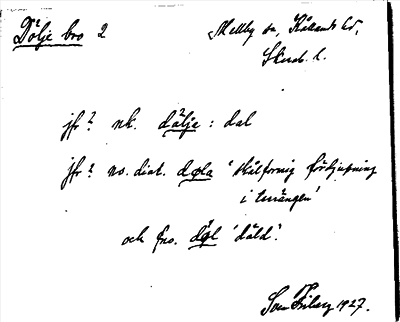 Dölje bro 2
Mellby sn, Kållands hd,
Skarab. l.
jfr? nk. dälja : dal
jfr? no. dial. døla 'skålformig fördjupning
i terrängen'
och fno. døl 'däld'.
1927.